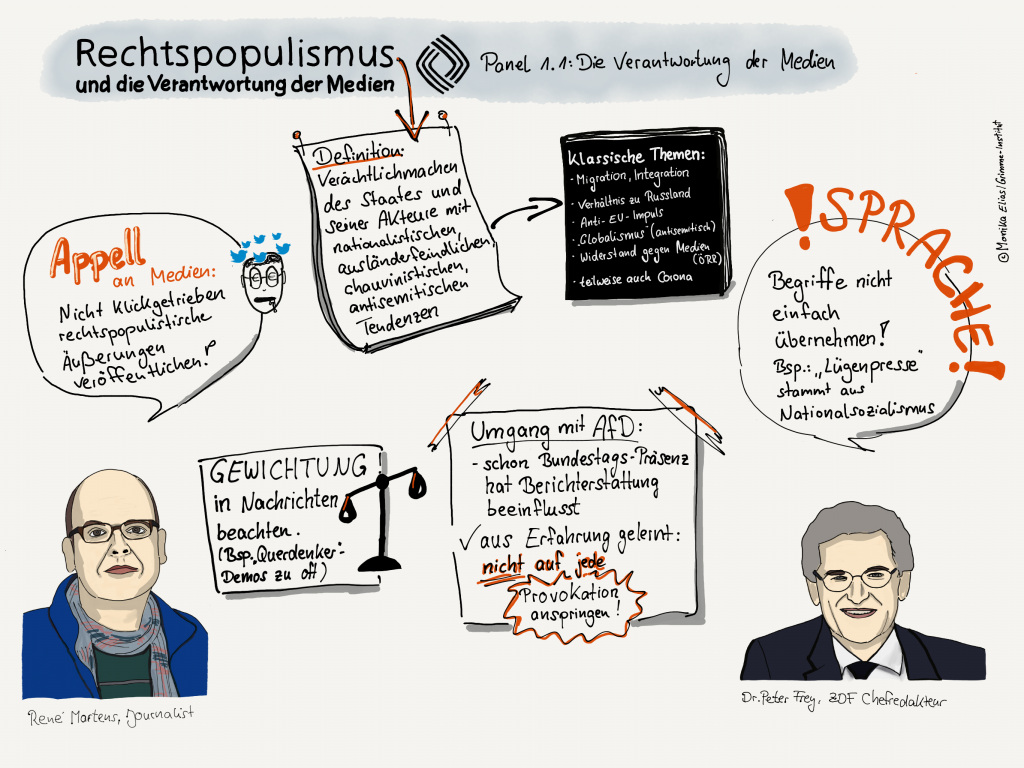 Rechtspopulismus
und die Verantwortung der Medien
Panel 1.1: Die Verantwortung der Medien
Definition:
Verächtlichmachen
des Staates und
seiner Akteure mit
nationalistischen,
ausländerfeindlichen,
chauvinistischen,
antisemitischen
Tendenzen
Klassische Themen:
· Migration, Integration
· Verhältnis zu Russland
· Anti-EU-Impuls
· „Globalismus“ (antisemitisch)
· Widerstand gegen Medien
(ÖRR)
· teilweise auch Corona
©Monika Elias/Grimme-Institut
Appell
an Medien:
Nicht Klickgetrieben
rechtspopulistische
Äußerungen
veröffentlichen!
! SPRACHE!
Begriffe nicht
einfach
übernehmen!
Bsp.: „Lügenpresse“
stammt aus
Nationalsozialismus
GEWICHTUNG
in Nachrichten
beachten.
(Bsp. „Querdenker“-
Demos zu oft)
Umgang mit AfD:
- schon Bundestags-Präsenz
hat Berichterstattung
beeinflusst
✓ aus Erfahrung gelernt:
nicht auf jede
Provokation
anspringen!
René Martens, Journalist
Dr. Peter Frey, ZDF Chefredakteur